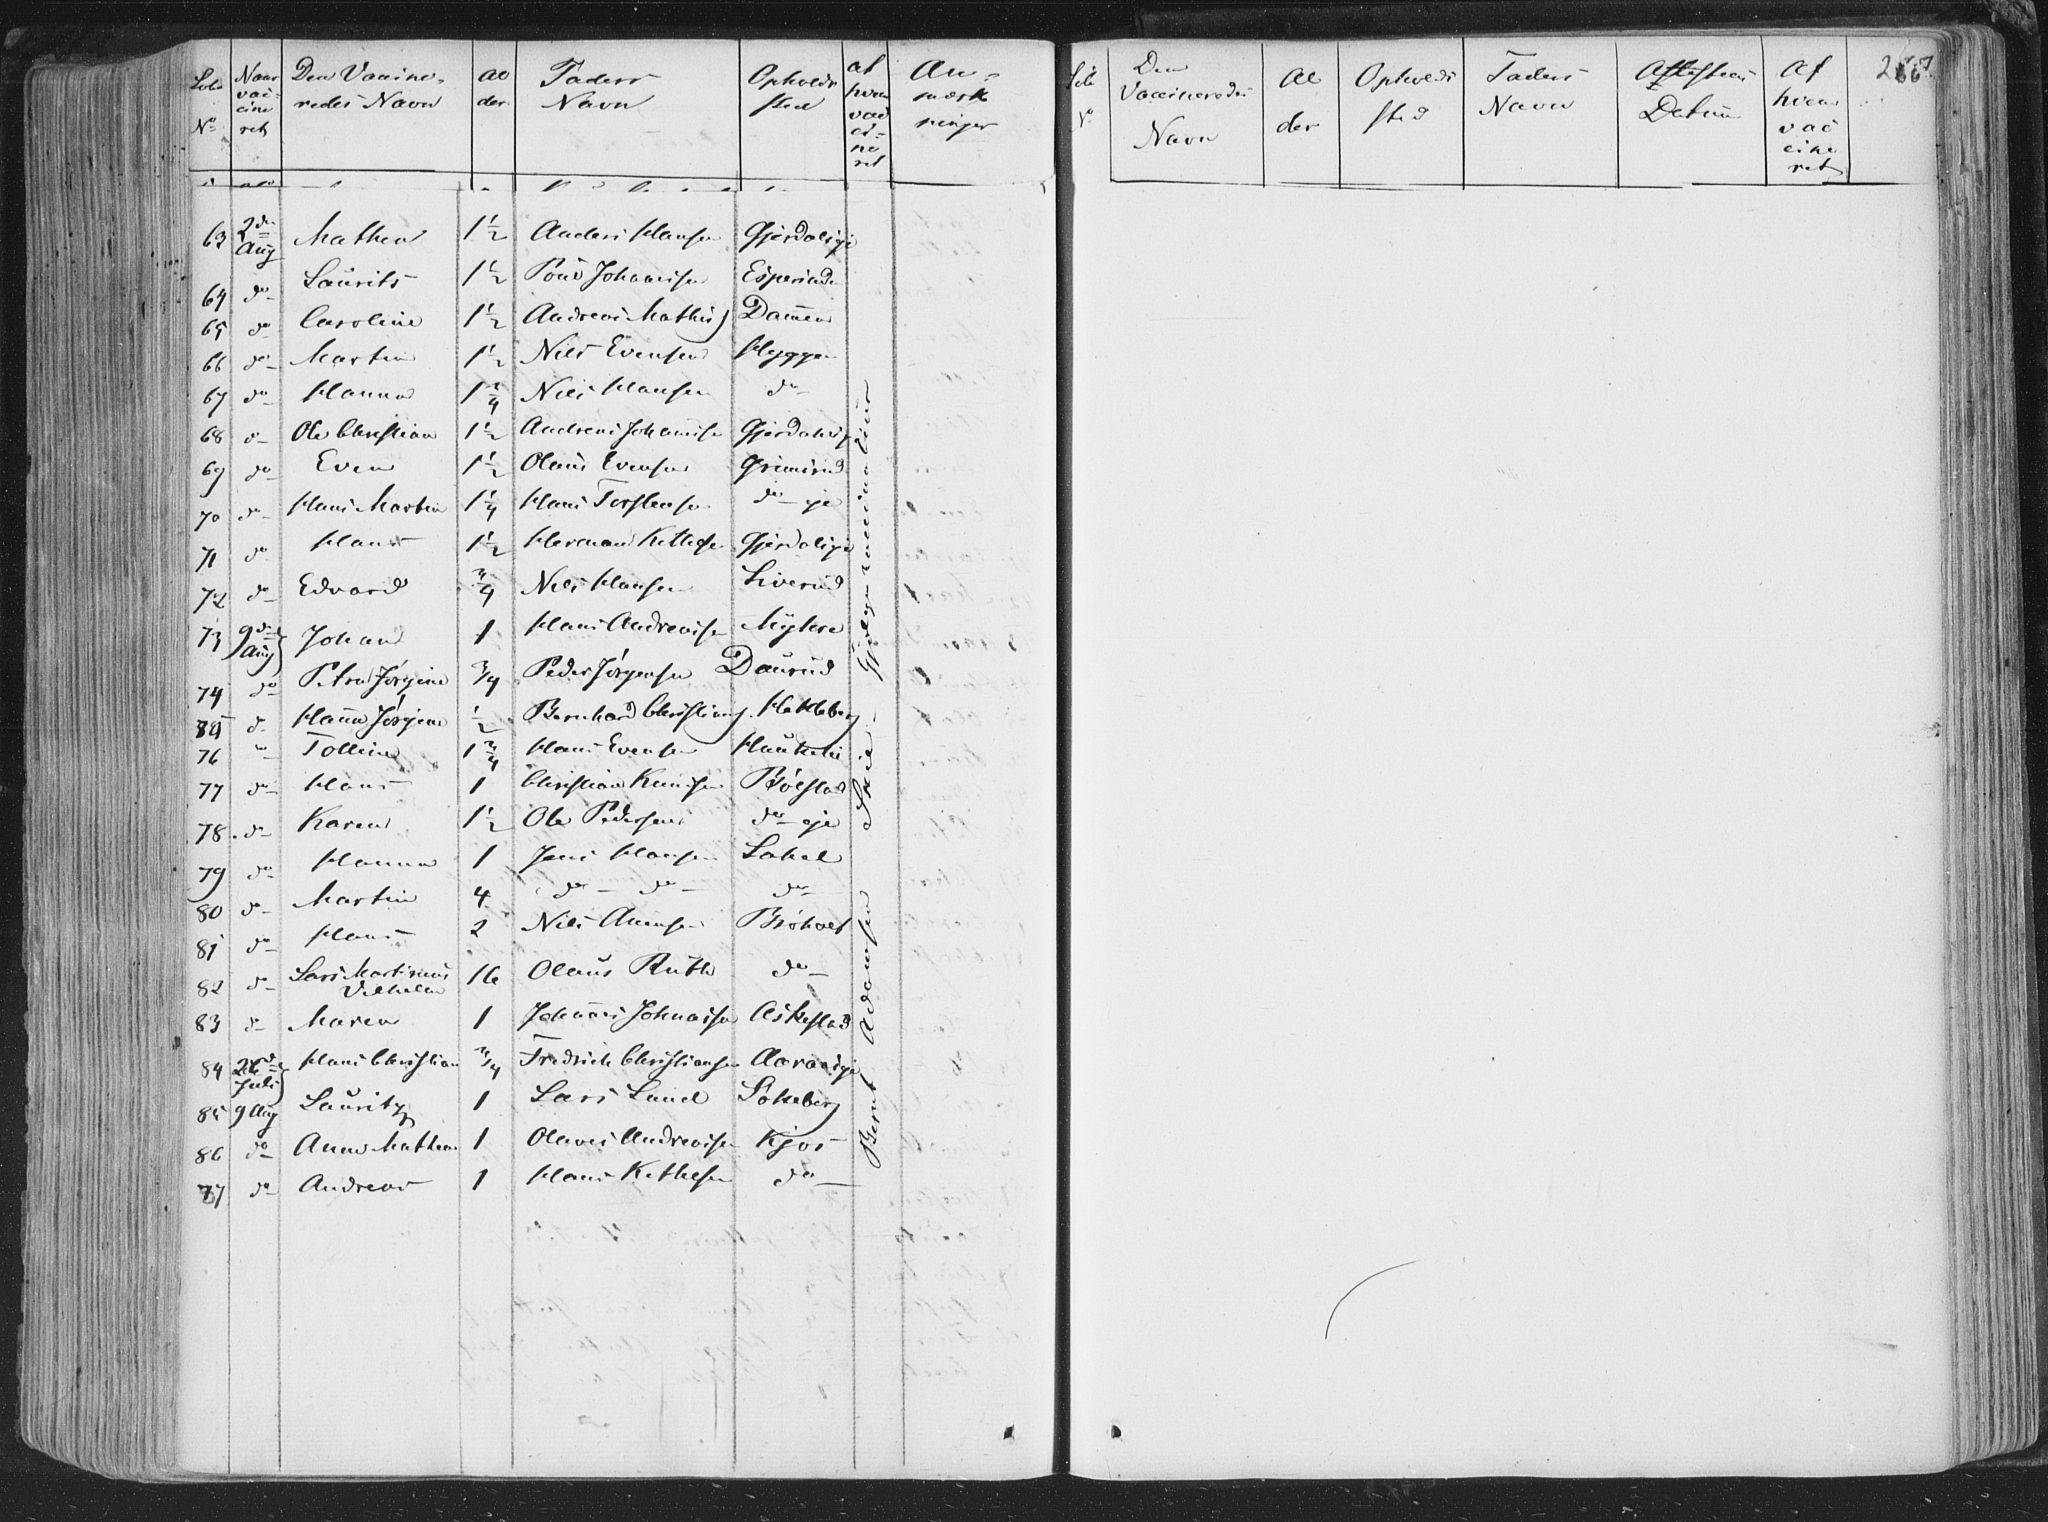 Løb No | Naar vaccineret | Den Vaccineredes Navn | Alder | Faders Navn | Opholdssted | af hvem vaccineret | Anmærkninger
63 | 2de Aug | Mathea | 1 1/2 | Anders Hansen | Gjerdalseje
64 | do | Laurits | 1 1/2 | Poul Johannsen | Esperud
65 | do | Caroline | 1 1/2 | Andreas Mathis | Dammen
66 | do | Martin | 1 1/2 | Nils Evensen | Hyggen
67 | do | Hanna | 1 3/4 | Nils Hansen | do
68 | do | Ole Christian | 1 1/2 | Andreas Johannsen | Gjerdalseje
69 | do | Even | 1 1/2 | Olaus Evensen | Grimsrud
70 | do | Hans Martin | 1 1/4 | Hans Torstensen | do eje
71 | do | Hans | 1 1/2 | Herman Kittelsen | Gjerdalseje
72 | do | Edvard | 3/4 | Nils Hansen | Liverud
73 | 9de Aug | Johan | 1 | Hans Andreasen | Myhre
74 | do | Petra Jørgine | 3/4 | Peder Jørgensen | Daurud
do | Hanna Jørgine | 1/2 | Bernhard Christians. | Hekleberg
76 | " | Tolline | 1 3/4 | Hans Evensen
77 | do | Hans | 1 | Christian Knudsen | Bølstad
78 | do | Karen | 1 1/2 | Ole Pedersen | do eje
79 | do | Hanna | 1 | Jens Hansen
80 | do | Martin | 4 | do do | do
81 | do | Hans | 2 | Nils Amensen | Brøholt
82 | do | Lars Martinius Vilhelm | 16 | Olaus Ruth | do
83 | do | Maren | 1 | Johannes Johnassen | Askestad
84 | 26de Juli | Hans Christian | 3/4 | Fredrich Christiansen | Aaraseje
85 | 9 Aug | Lauritz | 1 | Lars Lund | Søheberg
86 | do | Anne Mathea | 1 | Olaves Andreasen | Kjos
77 | do | Andreas | 1 | Hans Kittelsen | do
Bernt Adamsen Skie Hjelpevaccinateur
Løb No | Den Vaccineredes Navn | Alder | Opholdssted | Faders Navn | Attestens Datum | Af hvem vaccineret